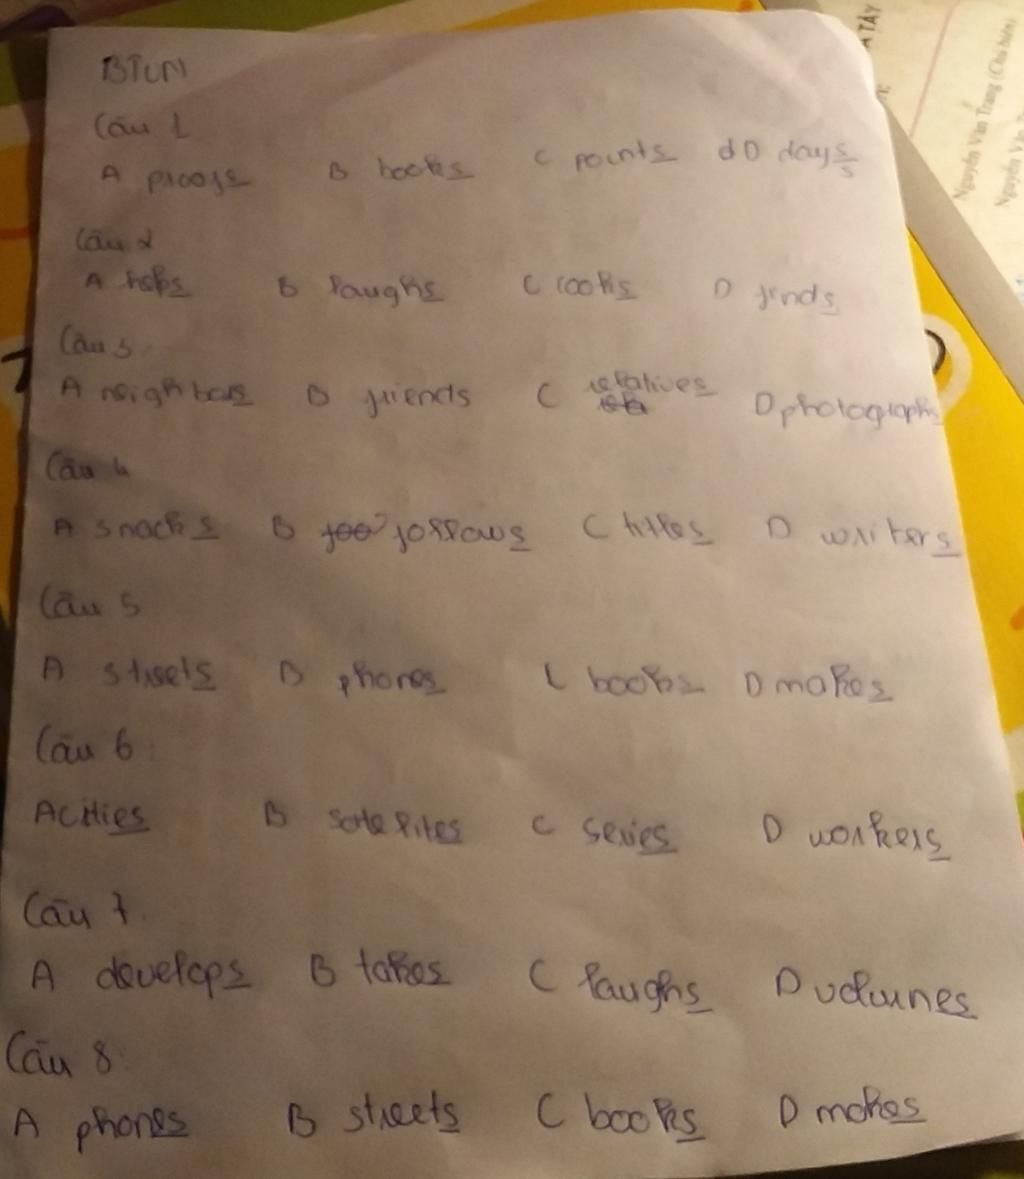 BTVN
Câu 1
A proofs B books C points D days
Câu 2
A helps B laughs C cooks D finds
Câu 3
A neighbors B friends C relatives D photographs
Câu 4
A snacks B follows C titles D writers
Câu 5
A streets B phones C books D makes
Câu 6
A cities B satellites C series D workers
Câu 7
A develops B takes C laughs D volumes
Câu 8
A phones B streets C books D makes
A TÂY
Nguyễn Văn Trang (Chủ biên)